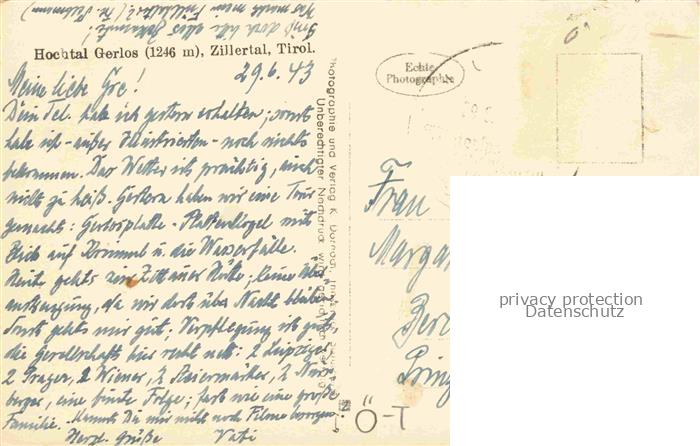 Hochtal Gerlos (1246 m), Zillertal, Tirol.
29.6.43
Meine liebe Gre!
Dein Tel. habe ich gestern erhalten; sonst
habe ich - außer Illustrierten - noch nichts
bekommen. Das Wetter ist prächtig, auch
nicht zu heiß. Gestern haben wir eine Tour
gemacht: Gerlosplatte - Plattenkogel mit
Blick auf Krimml u. die Wasserfälle.
Heute gehts zur Zittauer Hütte; keine
anstrengung, da wir dort über Nacht bleiben
Sonst gehts mir gut; Verpflegung ist gut
die Gesellschaft hier recht nett: 2 Leipziger
2 Prager, 2 Wiener, 2 Steiermärker, 2 Nürn
berger, eine bunte Folge; fast wie eine große
Familie. Kannst Du mir nicht noch Filme besorgen?
Herzl. Grüße Vati
Echte
Photographie
Photographie und Verlag K.
Unberechtigter Nachdruck wird
Frau
Marga
Ber
Prinz
I-Ö
privacy protection
Datenschutz